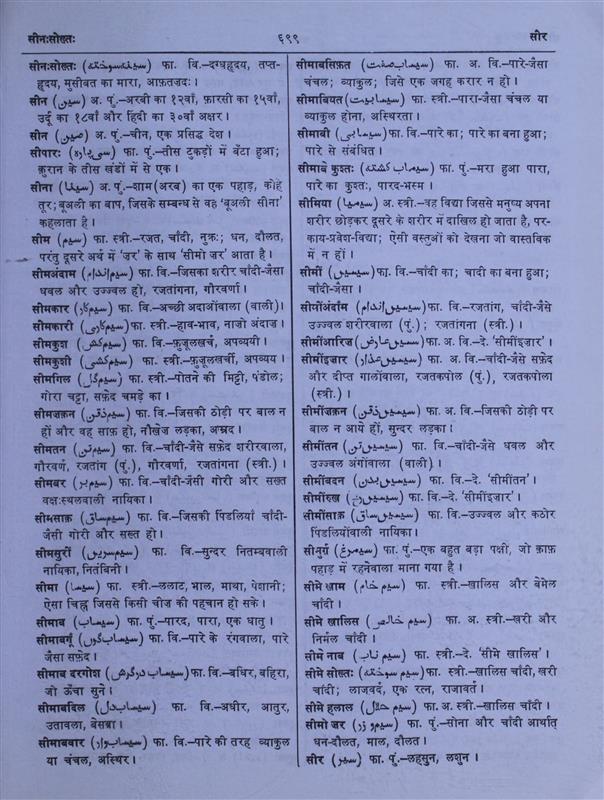 सीनःसोख़्तः ६९९ सीर
सीनःसोख़्तः (سینہ سوختہ) फा. वि.–दग्धहृदय, तप्त-
हृदय, मुसीबत का मारा, आफ़तज़दः।
सीन (سین) अ. पुं.–अरबी का १२वाँ, फ़ारसी का १५वाँ,
उर्दू का १८वाँ और हिंदी का ३०वाँ अक्षर।
सीन (صین) अ. पुं.–चीन, एक प्रसिद्ध देश।
सीपारः (سی پارہ) फा. पुं.–तीस टुकड़ों में बँटा हुआ;
क़ुरान के तीस खंडों में से एक।
सीना (سینا) अ. पुं.–शाम (अरब) का एक पहाड़, कोहे
तूर; बूअली का बाप, जिसके सम्बन्ध से वह 'बूअली सीना'
कहलाता है।
सीम (سیم) फा. स्त्री.–रजत, चाँदी, नुक्रः; धन, दौलत,
परंतु दूसरे अर्थ में 'ज़र' के साथ 'सीमो ज़र' आता है।
सीमअंदाम (سیم اندام) फा. वि.–जिसका शरीर चाँदी-जैसा
धवल और उज्ज्वल हो, रजतांगना, गौरवर्णा।
सीमकार (سیم کار) फा. वि.–अच्छी अदाओंवाला (वाली)।
सीमकारी (سیم کاری) फा. स्त्री.–हाव-भाव, नाज़ो अंदाज़।
सीमकुश (سیم کش) फा. वि.–फ़ुज़ूलखर्च, अपव्ययी।
सीमकुशी (سیم کشی) फा. स्त्री.–फ़ुज़ूलखर्ची, अपव्यय।
सीमगिल (سیم گل) फा. स्त्री.–पोतने की मिट्टी, पंडोल;
गोरा चट्टा, सफ़ेद चमड़े का।
सीमज़क़न (سیم ذقن) फा. अ. वि.–जिसकी ठोड़ी पर बाल न
हों और वह साफ़ हो, नौख़ेज़ लड़का, अम्रद।
सीमतन (سیم تن) फा. वि.–चाँदी-जैसे सफ़ेद शरीरवाला,
गौरवर्ण, रजतांग (पुं.), गौरवर्णा, रजतांगना (स्त्री.)।
सीमबर (سیم بر) फा. वि.–चाँदी-जैसी गोरी और सख्त
वक्षःस्थलवाली नायिका।
सीमसाक़ (سیم ساق) फा. वि.–जिसकी पिंडलियाँ चाँदी-
जैसी गोरी और सख्त हो।
सीमसुरीं (سیم سرین) फा. वि.–सुन्दर नितम्बवाली
नायिका, नितंबिनी।
सीमा (سیما) फा. स्त्री.–ललाट, भाल, माथा, पेशानी;
ऐसा चिह्न जिससे किसी चीज़ की पहचान हो सके।
सीमाब (سیماب) फा. पुं.–पारद, पारा, एक धातु।
सीमाबगूँ (سیماب گوں) फा. वि.–पारे के रंगवाला, पारे
जैसा सफ़ेद।
सीमाब दरगोश (سیماب در گوش) फा. वि.–बधिर, बहिरा,
जो ऊँचा सुने।
सीमाबदिल (سیماب دل) फा. वि.–अधीर, आतुर,
उतावला, बेसब्रा।
सीमाबवार (سیماب وار) फा. वि.–पारे की तरह व्याकुल
या चंचल, अस्थिर।
सीमाबसिफ़त (سیماب صفت) फा. अ. वि.–पारे-जैसा
चंचल; व्याकुल; जिसे एक जगह क़रार न हो।
सीमाबियत (سیمابیت) फा. स्त्री.–पारा-जैसा चंचल या
व्याकुल होना, अस्थिरता।
सीमाबी (سیمابی) फा. वि.–पारे का; पारे का बना हुआ;
पारे से संबंधित।
सीमाबे कुश्तः (سیماب کشتہ) फा. पुं.–मरा हुआ पारा,
पारे का कुश्तः, पारद-भस्म।
सीमिया (سیمیا) अ. स्त्री.–वह विद्या जिससे मनुष्य अपना
शरीर छोड़कर दूसरे के शरीर में दाखिल हो जाता है, पर-
काय-प्रवेश-विद्या; ऐसी वस्तुओं को देखना जो वास्तविक
में न हों।
सीमीं (سیمیں) फा. वि.–चाँदी का; चांदी का बना हुआ;
चाँदी-जैसा।
सीमींअंदाम (سیمیں اندام) फा. वि.–रजतांग, चाँदी-जैसे
उज्ज्वल शरीरवाला (पुं.); रजतांगना (स्त्री.)।
सीमींआरिज़ (سیمیں عارض) फा. अ. वि.–दे. 'सीमींइज़ार'।
सीमींइज़ार (سیمیں عذار) फा. अ. वि.–चाँदी-जैसे सफ़ेद
और दीप्त गालोंवाला, रजतकपोल (पुं.), रजतकपोला
(स्त्री.)।
सीमींज़क़न (سیمیں ذقن) फा. अ. वि.–जिसकी ठोड़ी पर
बाल न आये हों, सुन्दर लड़का।
सीमींतन (سیمیں تن) फा. वि.–चाँदी-जैसे धवल और
उज्ज्वल अंगोंवाला (वाली)।
सीमींबदन (سیمیں بدن) फा. वि.–दे. 'सीमींतन'।
सीमींरुख़ (سیمیں رخ) फा. वि.–दे. 'सीमींइज़ार'।
सीमींसाक़ (سیمیں ساق) फा. वि.–उज्ज्वल और कठोर
पिंडलियोंवाली नायिका।
सीमुर्ग़ (سیمرغ) फा. पुं.–एक बहुत बड़ा पक्षी, जो क़ाफ़
पहाड़ में रहनेवाला माना गया है।
सीमे ख़ाम (سیم خام) फा. स्त्री.–ख़ालिस और बेमेल
चांदी।
सीमे ख़ालिस (سیم خالص) फा. अ. स्त्री.–खरी और
निर्मल चांदी।
सीमे नाब (سیم ناب) फा. स्त्री.–दे. 'सीमे ख़ालिस'।
सीमे सोख़्तः (سیم سوختہ) फा. स्त्री.–ख़ालिस चाँदी, खरी
चांदी; लाजवर्द, एक रत्न, राजावर्त।
सीमे हलाल (سیم حلال) फा. अ. स्त्री.–ख़ालिस चांदी।
सीमो ज़र (سیم و زر) फा. पुं.–सोना और चांदी अर्थात्
धन-दौलत, माल, दौलत।
सीर (سیر) फा. पुं.–लहसुन, लशुन।